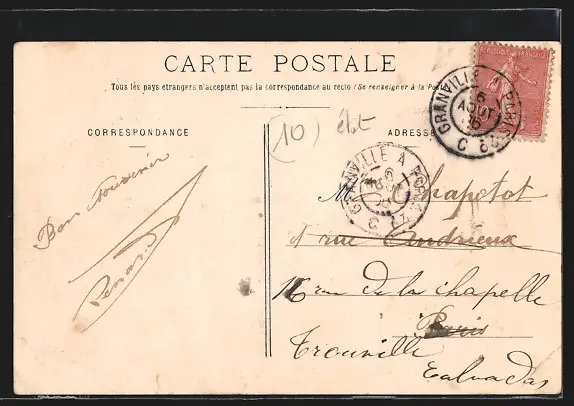 CARTE POSTALE
Tous les pays étrangers n'acceptent pas la correspondance au recto (Se renseigner à la Poste)
CORRESPONDANCE
ADRESSE
(10) état
REPUBLIQUE FRANÇAISE
GRANVILLE A PARIS
6
AOUT
06
GRANVILLE A
6
Bon Souvenir
Penard
M Chapotot
1 rue Andrieux
rue de la chapelle
Paris
Trouville
Calvados